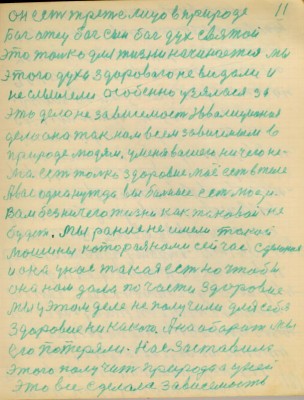 11
он есть третье лицо в природе
Бог отец бог сын бог дух святой
Это только для жизни начинается мы
этого духа здорового не видали и
не слышели особенно узялася за
это дело не зависемост Эволюционая
дело она так нам всем зависимым в
природе людям. у меня вашего ничего не-
ма есть только здоровие моё естественое
А вас одна нужда вы больные есть люди
Вам без ничего жизни как таковой не
будет. Мы раньше не имели такой
мошины которая нами сейчас сделана
и она у нас такая есть но чтобы
она нам дала по части здоровие
мы у этом деле не получили для себя
здоровие никакого А наоборот мы
его потеряли. Нас заставила
этого получит природа а у ней
Это все сделала зависемость